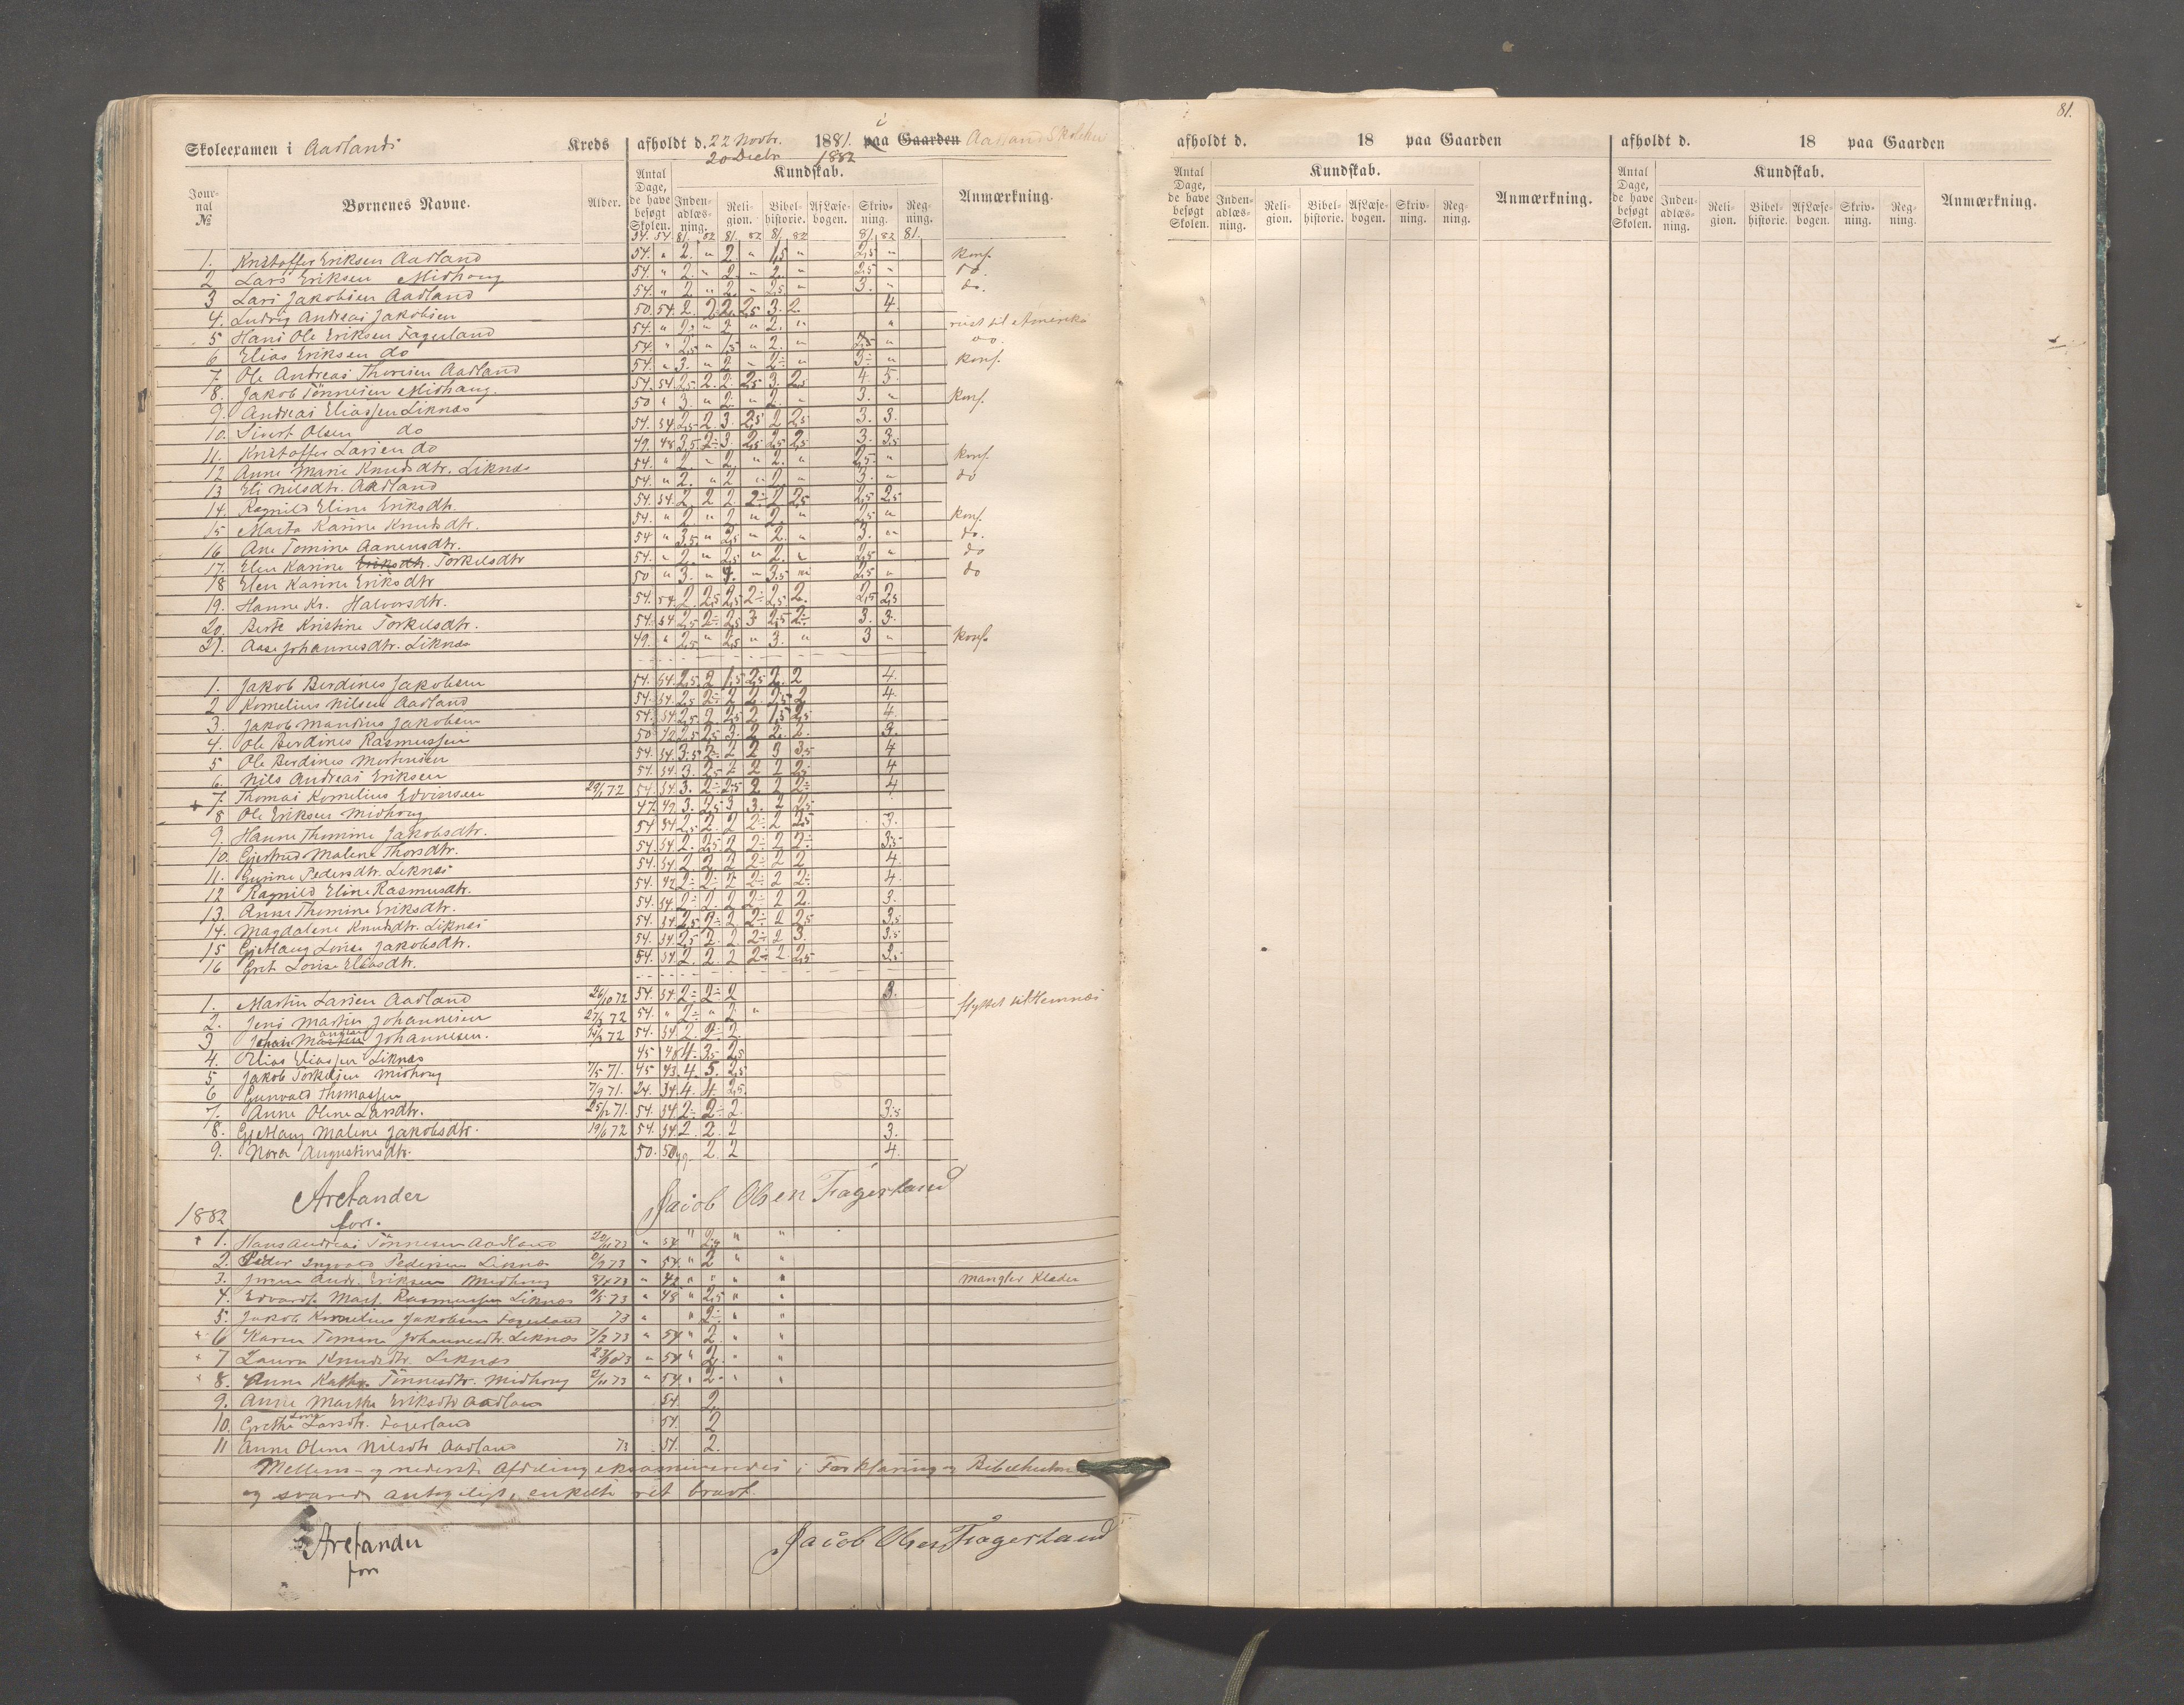 81.
Skoleexamen i Aadlands Kreds afholdt d. 22 Novbr. 1881. i paa Gaarden Aadland Skolehus
20 Decbr 1882
Journal № Børnenes Navne. Alder. Antal Dage, de have besøgt Skolen. Kundskab. Anmærkning.
Indenadlæsning. Religion. Bibelhistorie. Af Læsebogen. Skrivning. Regning.
54. 54 81. 82 81. 82 81. 82 81. 82 81.
1. Kristoffer Eriksen Aadland 54. " 2. " 2. " 1,5 " 2,5 " konf.
2 Lars Eriksen Midhaug 54. " 2. " 2. " 2. " 2,5 " do.
3 Lars Jakobsen Aadland 54. " 2. " 2. " 2,5 " 3. " do.
4. Ludvig Andreas Jakobsen 50. 54. 2. 2. 2. 2,5 3. 2. 4.
5 Hans Ole Eriksen Fagerland 54. " 2. " 2. " 2. " " reist til Amerika
6 Elias Eriksen do 54. " 2,5 " 1,5 " 2. " 2,5 " do.
7. Ole Andreas Thorsen Aadland 54. " 3. " 2 " 2÷ " 3÷ " konf.
8. Jakob Tönnesen Midhaug. 54. 54. 2,5. 2. 2. 2,5 3. 2,5 4. 5.
9. Andreas Eliassen Liknæs 50 " 3. " 2. " 2. " 3. " konf.
10. Sivert Olsen do 54. 54. 2,5. 2. 3. 2,5 2 2,5 3. 3.
11. Kristoffer Larsen do 49. 48 3,5. 2÷ 3. 2,5 2,5 2,5 3. 3,5
12 Anne Marie Knudsdtr. Liknæs 54. " 2. " 2. " 2. " 2,5. " konf.
13 Eli Nilsdtr. Aadland 54. " 2. " 2 " 2. " 3. " do
14. Ragnild Eline Eriksdtr. 54. 54. 2 2 2 2÷ 2 2,5 2,5 2,5
15 Marta Karine Knudsdtr. 54. " 2. " 2 " 2. " 2,5 " konf.
16 Ane Tomine Aanensdtr. 54 " 3,5. " 2,5 " 2. " 3. " do.
17. Elen Karine Eriksdtr. Torkelsdtr 54. " 2. " 2,5 " 2. " 2,5 " do
18 Elen Karine Eriksdtr 50 " 3. " 4. " 3,5 " 2,5 " do
19. Hanne Kr. Halvorsdtr. 54. 54. 2. 2,5 2,5 2÷ 2,5 2. 2,5 2,5
20. Berte Kristine Torkelsdtr. 54. 54 2,5 2÷ 2,5 3 2,5 2÷ 3. 3.
21. Aase Johannesdtr. Liknæs 49. " 2,5 " 2,5 " 3. " 3 " konf.
1. Jakob Berdines Jakobsen 54. 54. 2,5. 2 1,5 2,5 2. 2 4.
2 Kornelius Nilsen Aadland 54. 54. 2,5 2÷ 2 2 2,5 2 4.
3. Jakob Mandius Jakobsen 54. 54. 2,5. 2. 2,5 2 1,5 2,5 4.
4. Ole Berdines Rasmussen 50 42 2,5 2,5 3. 2 2. 2. 3.
5 Ole Berdines Mortensen 54. 54. 3,5 2÷ 2 2 3 3,5 4
6. Nils Andreas Eriksen 54. 54. 3. 2,5 2 2 2 2,5 4
+ 7. Thomas Kornelius Edvinsen 29/1 72 54. 54. 3. 2÷ 2,5 2 2 2÷ 4
8 Ole Eriksen Midhaug 47. 49. 3. 2,5 3 3. 2 2,5
9. Hanne Thomine Jakobsdtr. 54 54 2,5. 2. 2 2÷ 2 2,5 3.
10. Gjertrud Malene Thorsdtr. 54. 54. 2. 2,5. 2 2÷ 2 2÷ 3,5
11. Gurine Pedersdtr. Liknæs 54. 54. 2 2 2 2÷ 2 2 4.
12 Ragnild Eline Rasmusdtr. 54. 42 2÷ 2÷ 2 2÷ 2 2÷ 4.
13. Anne Thomine Eriksdtr. 54. 54 2÷ 2. 2 2÷ 2 2. 3.
14. Magdalene Knudsdtr. Liknæs 54. 54. 2,5 2÷ 2 2÷ 2 2,5 3,5
15 Gjetlaug Lovise Jakobsdtr. 54. 54. 2,5 2. 2 2÷ 2 3. 3,5
16 Gret. Lovise Eliasdtr. 54. 54. 2. 2. 2 2÷ 2 2,5 3,5
1. Martin Larsen Aadland 26/10 72 54. 54. 2÷ 2÷ 2 3.
2. Jens Martin Johannesen 27/3 72 54. " 2÷ " 2 " flyttet til Hemnæs
3 Johan Martin Andreas Johannesen. 72 54. 54. 2. 2÷ 2.
4. Elias Eliassen Liknæs 45 48 4. 3,5 2,5
5 Jakob Torkelsen Midhaug 7/5 71. 45 43. 4. 5. 2,5
6 Gunvald Thomassen 7/9 71. 24. 54. 4. 4 2,5.
7. Anne Oline Larsdtr. 25/12 71. 54. 54. 2÷ 2÷ 2. 3,5
8. Gjetlaug Malene Jakobsdtr. 19/6 72 54. 54. 2. 2. 2 3.
9. Nora Augustinsdtr. 50. 50 2. 2 4.
Arctander Jacob Olsen Fagerland
fort.
1882
+ 1. Hans Andreas Tönnesen Aadland 22/11 73 " 54. " 2,4 " "
2. Peder Ingvald Pedersen Liknæs 2/9 73 " 54. " 2 " "
3. Jonas Andr. Eriksen Midhaug 8/4 73 " 42 " " " " mangler Klæder
4. Edvard Mart. Rasmussen Liknæs 2/5 73 " 48 " 2,5 " "
5. Jakob Kornelius Jakobsen Fagerland 73 " " 2÷ " "
+ 6 Karen Tomine Johannesdtr. Liknæs 7/2 73 " 54 " 2 " "
+ 7 Laura Knudsdtr. Liknæs 23/10 73 " 54 " 2. " "
+ 8. Anna Kathr. Tönnesdtr. Midhaug 2/11 73 " 54. " 2- " "
9. Anne Marthe Eriksdtr Aadland 54. 2.
10. Grethe Lovise Larsdtr. Fagerland 54. 2
11 Anne Oline Nilsdtr Aadland 73 54. 2.
Mellem- og nederste Afdeling eksamineredes i Forklaring og Bibelhistorie
og svarede antageligt, enkelte ret bravt.
Arctander Jacob Olsen Fagerland
fort
afholdt d. 18 paa Gaarden
Antal Dage, de have besøgt Skolen. Kundskab. Anmærkning.
Indenadlæsning. Religion. Bibelhistorie. Af Læsebogen. Skrivning. Regning.
afholdt d. 18 paa Gaarden
Antal Dage, de have besøgt Skolen. Kundskab. Anmærkning.
Indenadlæsning. Religion. Bibelhistorie. Af Læsebogen. Skrivning. Regning.